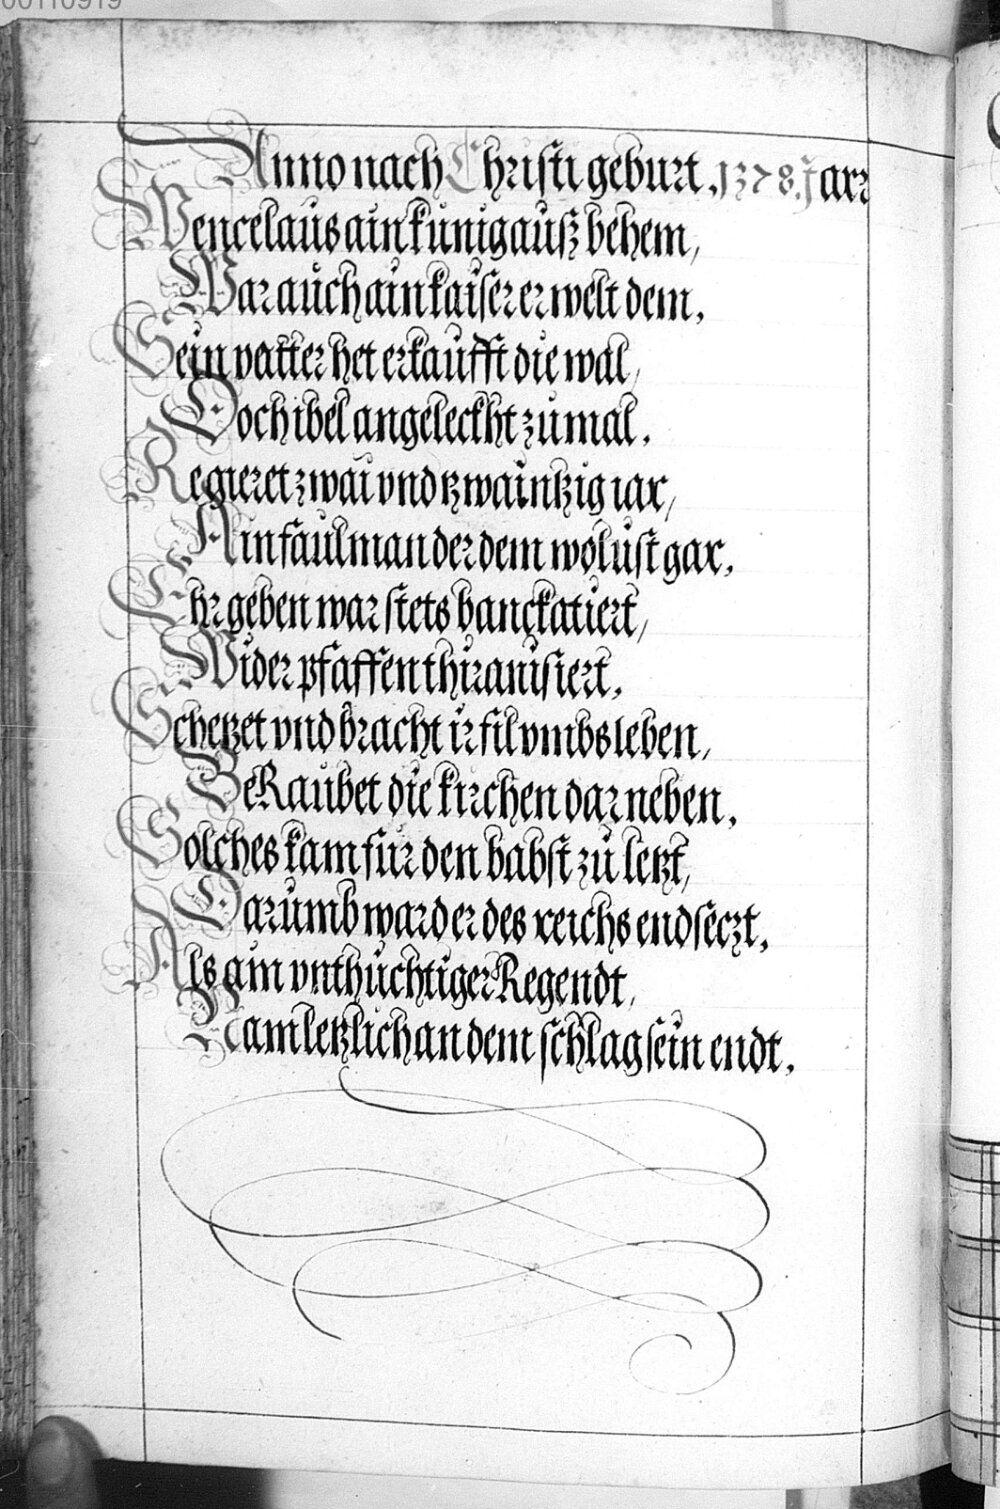 00110919
Anno nach Christi geburt .1378. Jarr
Wencelaus ain künig auß behem,
War auch ain kaiser erwelt dem.
Sein vatter het erkaufft die wal,
Doch ibel angeleckht zu mal.
Regieret zwai vnd tzwaintzig iar,
Ain faul man der dem wolust gar.
Ehr geben war stets banckatiert,
Wider pfaffen thiranisiert.
Schetzet vnd bracht ir fil vmbs leben,
BeRaubet die kirchen darneben.
Solches kam für den babst zu letzt,
Darumb ward er des reichs endseczt.
Als ain vnthüchtiger Regendt,
Nam letzlich an dem schlag sein endt.